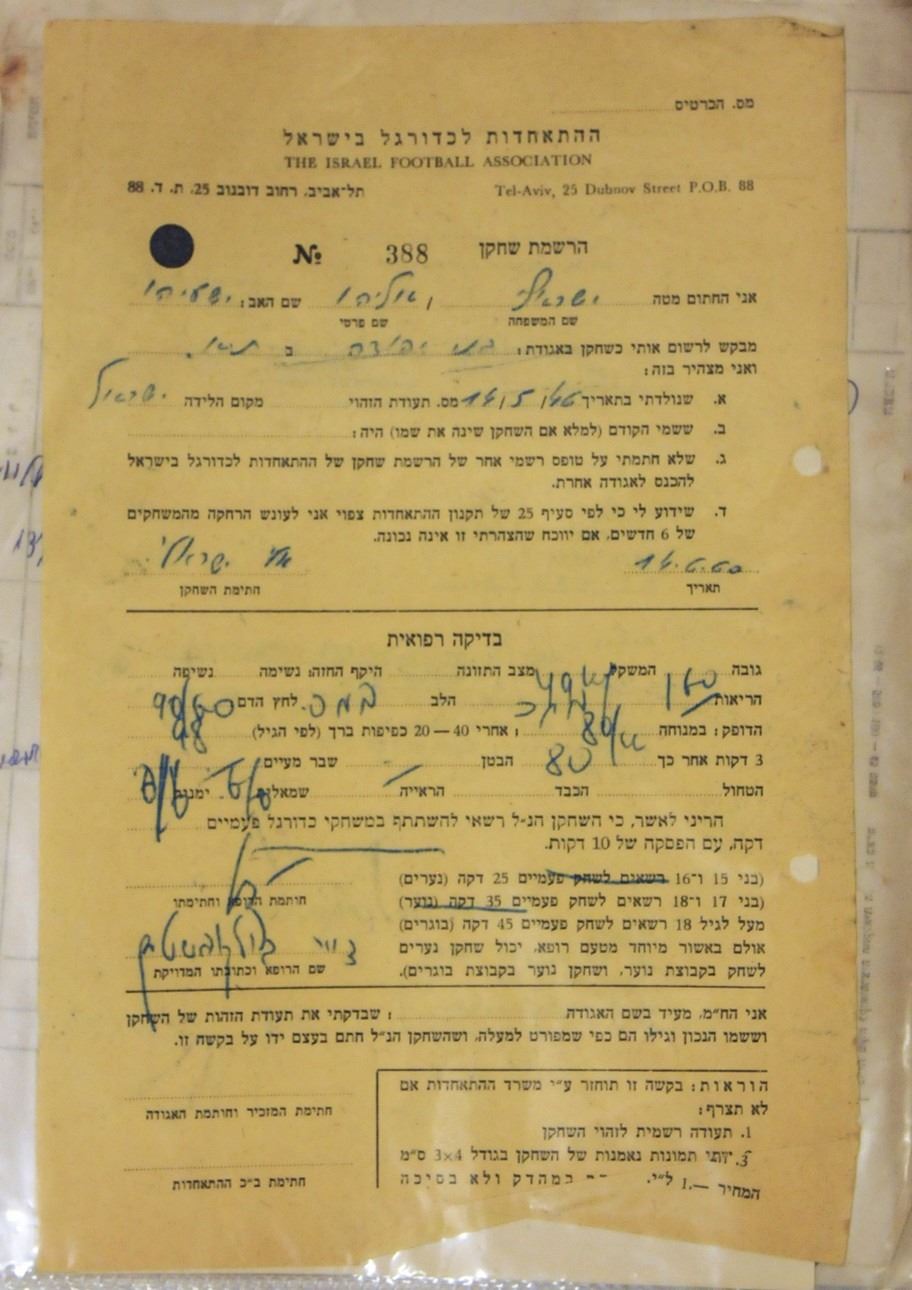 מס. הכרטיס
ההתאחדות לכדורגל בישראל
THE ISRAEL FOOTBALL ASSOCIATION
תל־אביב, רחוב דובנוב 25, ת. ד. 88 Tel-Aviv, 25 Dubnov Street P.O.B. 88
הרשמת שחקן 388 №
אני החתום מטה ישראלי, אליהו שם האב: ישעיהו
שם המשפחה שם פרטי
מבקש לרשום אותי כשחקן באגודת: בני יהודה ב ת״א
ואני מצהיר בזה:
א. שנולדתי בתאריך 14/5/46 מס. תעודת הזהוי מקום הלידה ישראל
ב. ששמי הקודם (למלא אם השחקן שינה את שמו) היה:
ג. שלא חתמתי על טופס רשמי אחר של הרשמת שחקן של ההתאחדות לכדורגל בישראל
להכנס לאגודה אחרת.
ד. שידוע לי כי לפי סעיף 25 של תקנון ההתאחדות צפוי אני לעונש הרחקה מהמשחקים
של 6 חדשים, אם יווכח שהצהרתי זו אינה נכונה.
14.6.60 ישראלי
תאריך חתימת השחקן
בדיקה רפואית
גובה המשקל מצב התזונה היקף החזה: נשימה נשיפה
הריאות הלב לחץ הדם 90/60
הדופק: במנוחה 80 ; אחרי 40 — 20 כפיפות ברך (לפי הגיל) 98
3 דקות אחר כך 80 הבטן שבר מעיים
הטחול הכבד הראייה שמאלית 6/6 ימנית 6/6
הריני לאשר, כי השחקן הנ״ל רשאי להשתתף במשחקי כדורגל פעמיים
דקה, עם הפסקה של 10 דקות.
(בני 15 ו־16 רשאים לשחק פעמיים 25 דקה (נערים)
(בני 17 ו־18 רשאים לשחק פעמיים 35 דקה (נוער)
חותמת הרופא וחתימתו
מעל לגיל 18 רשאים לשחק פעמיים 45 דקה (בוגרים)
אולם באשור מיוחד מטעם רופא, יכול שחקן נערים
לשחק בקבוצת נוער, ושחקן נוער בקבוצת בוגרים).
שם הרופא וכתובתו המדויקת
אני הח״מ, מעיד בשם האגודה : שבדקתי את תעודת הזהות של השחקן
וששמו הנכון וגילו הם כפי שמפורט למעלה, ושהשחקן הנ״ל חתם בעצם ידו על בקשה זו.
הוראות: בקשה זו תוחזר ע״י משרד ההתאחדות אם
לא תצרף:
חתימת המזכיר וחותמת האגודה
1. תעודה רשמית לזהוי השחקן
תמונות נאמנות של השחקן בגודל 3×4 ס״מ
במהדק ולא בסיכה
חתימת ב״כ ההתאחדות
המחיר —.1 ל״י.